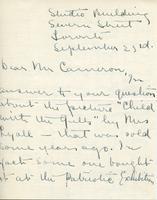 Studio Building
Severn Street
Toronto
September 23rd.
Dear Mr Cameron,
In
answer to your question
about the picture "Child
with the Gulls" by Mrs
Ryall - that was sold
some years ago. In
fact some one bought
it at the Patriotic Exhibition